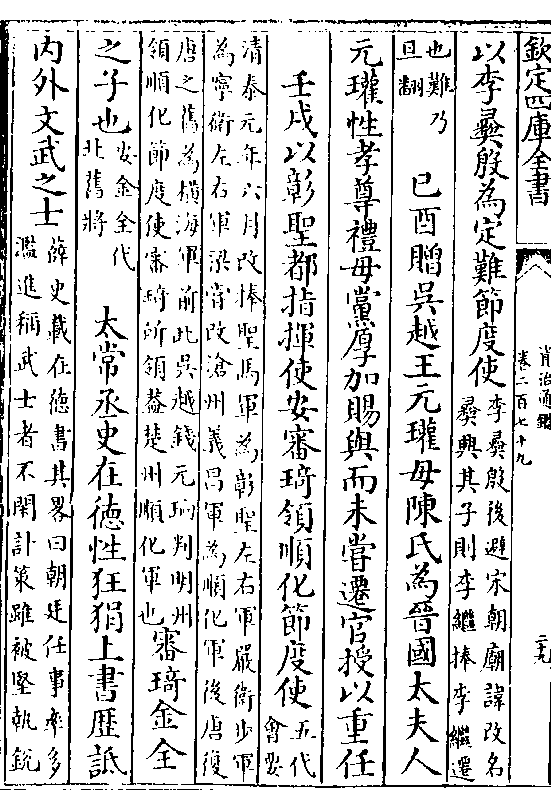 欽定四庫全書
資治通鑑
卷二百七十九
二十九
以李彛殷為定難節度使李彛殷後避宋朝廟諱改名
彛興其子則李繼捧李繼遷
也難乃
旦翻己酉贈吳越王元瓘母陳氏為晉國太夫人
元瓘性孝尊禮母黨厚加賜與而未嘗遷官授以重任
壬戌以彰聖都指揮使安審琦領順化節度使五代
會要
清泰元年六月改捧聖馬軍為彰聖左右軍嚴衛步軍
為寧衛左右軍梁嘗改滄州義昌軍為順化軍後唐復
唐之舊為橫海軍前此吳越錢元珦判明州
領順化節度使審琦所領葢楚州順化軍也審琦金全
之子也安金全代
北舊將太常丞史在徳性狂狷上書歴詆
内外文武之士薛史載在徳書其畧曰朝廷任事率多
濫進稱武士者不閑計策雖被堅執銳